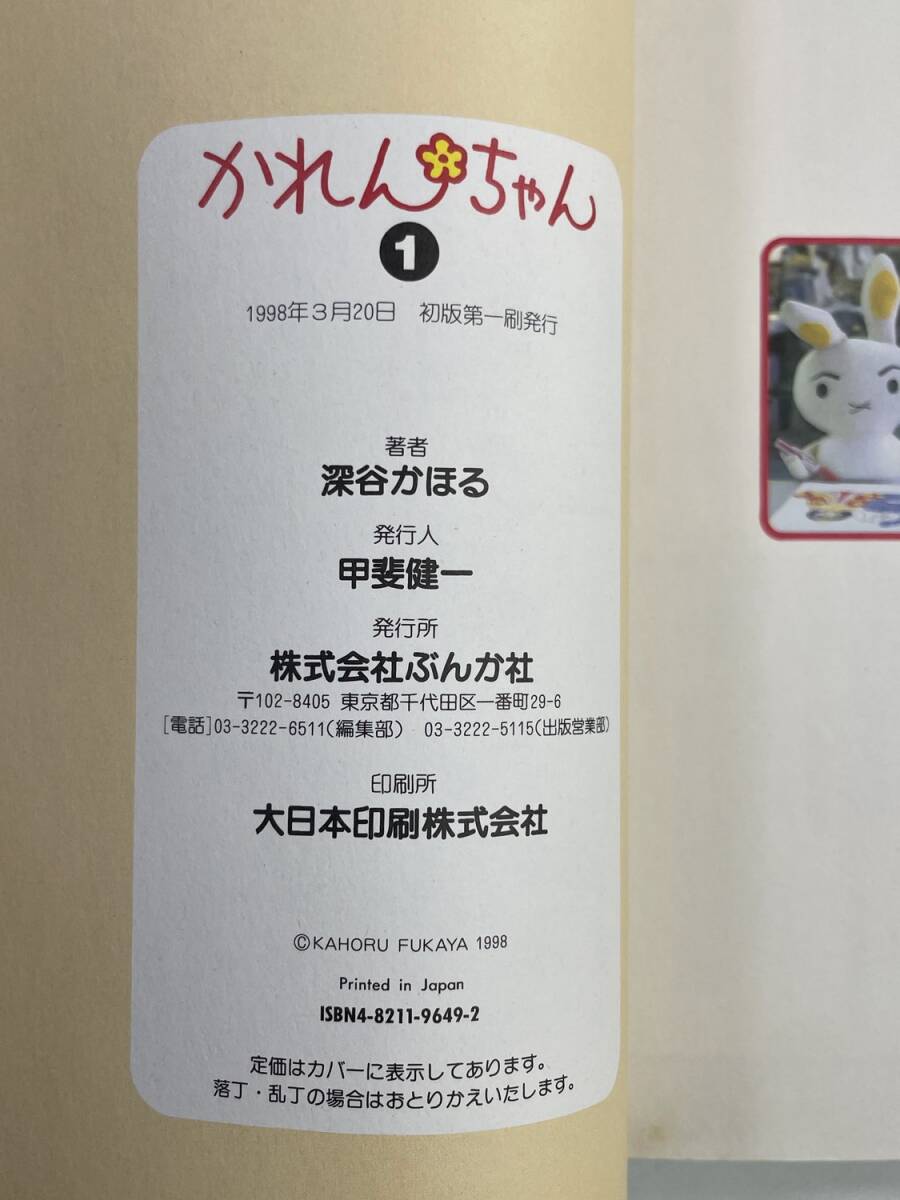 かれんちゃん
1
1998年3月20日 初版第一刷発行
著者
深谷かほる
発行人
甲斐健一
発行所
株式会社ぶんか社
〒102-8405 東京都千代田区一番町29-6
[電話]03-3222-6511(編集部) 03-3222-5115(出版営業部)
印刷所
大日本印刷株式会社
©KAHORU FUKAYA 1998
Printed in Japan
ISBN4-8211-9649-2
定価はカバーに表示してあります。
落丁・乱丁の場合はおとりかえいたします。